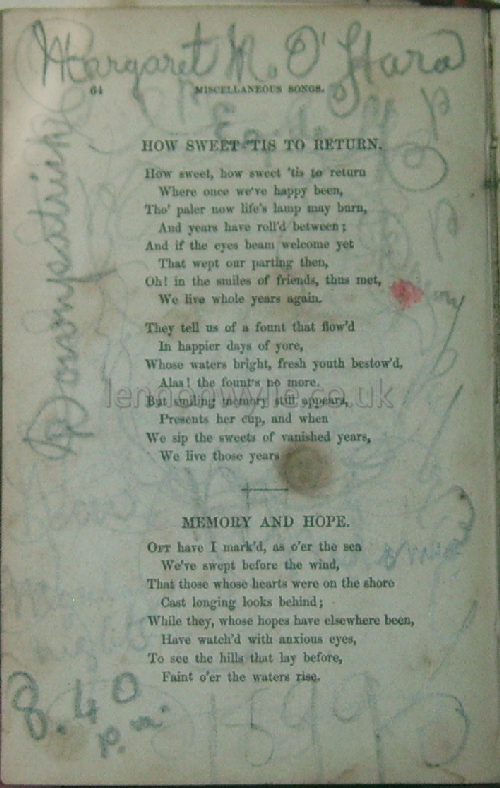 Margaret M. O'Hara
64 MISCELLANEOUS SONGS.
HOW SWEET 'TIS TO RETURN.
How sweet, how sweet 'tis to return
Where once we've happy been,
Tho' paler now life's lamp may burn,
And years have roll'd between;
And if the eyes beam welcome yet
That wept our parting then,
Oh! in the smiles of friends, thus met,
We live whole years again.
They tell us of a fount that flow'd
In happier days of yore,
Whose waters bright, fresh youth bestow'd,
Alas! the fount's no more.
But smiling memory still appears,
Presents her cup, and when
We sip the sweets of vanished years,
We live those years
MEMORY AND HOPE.
Oft have I mark'd, as o'er the sea
We've swept before the wind,
That those whose hearts were on the shore
Cast longing looks behind;
While they, whose hopes have elsewhere been,
Have watch'd with anxious eyes,
To see the hills that lay before,
Faint o'er the waters rise.
Downpatrick
8.40
p.m.